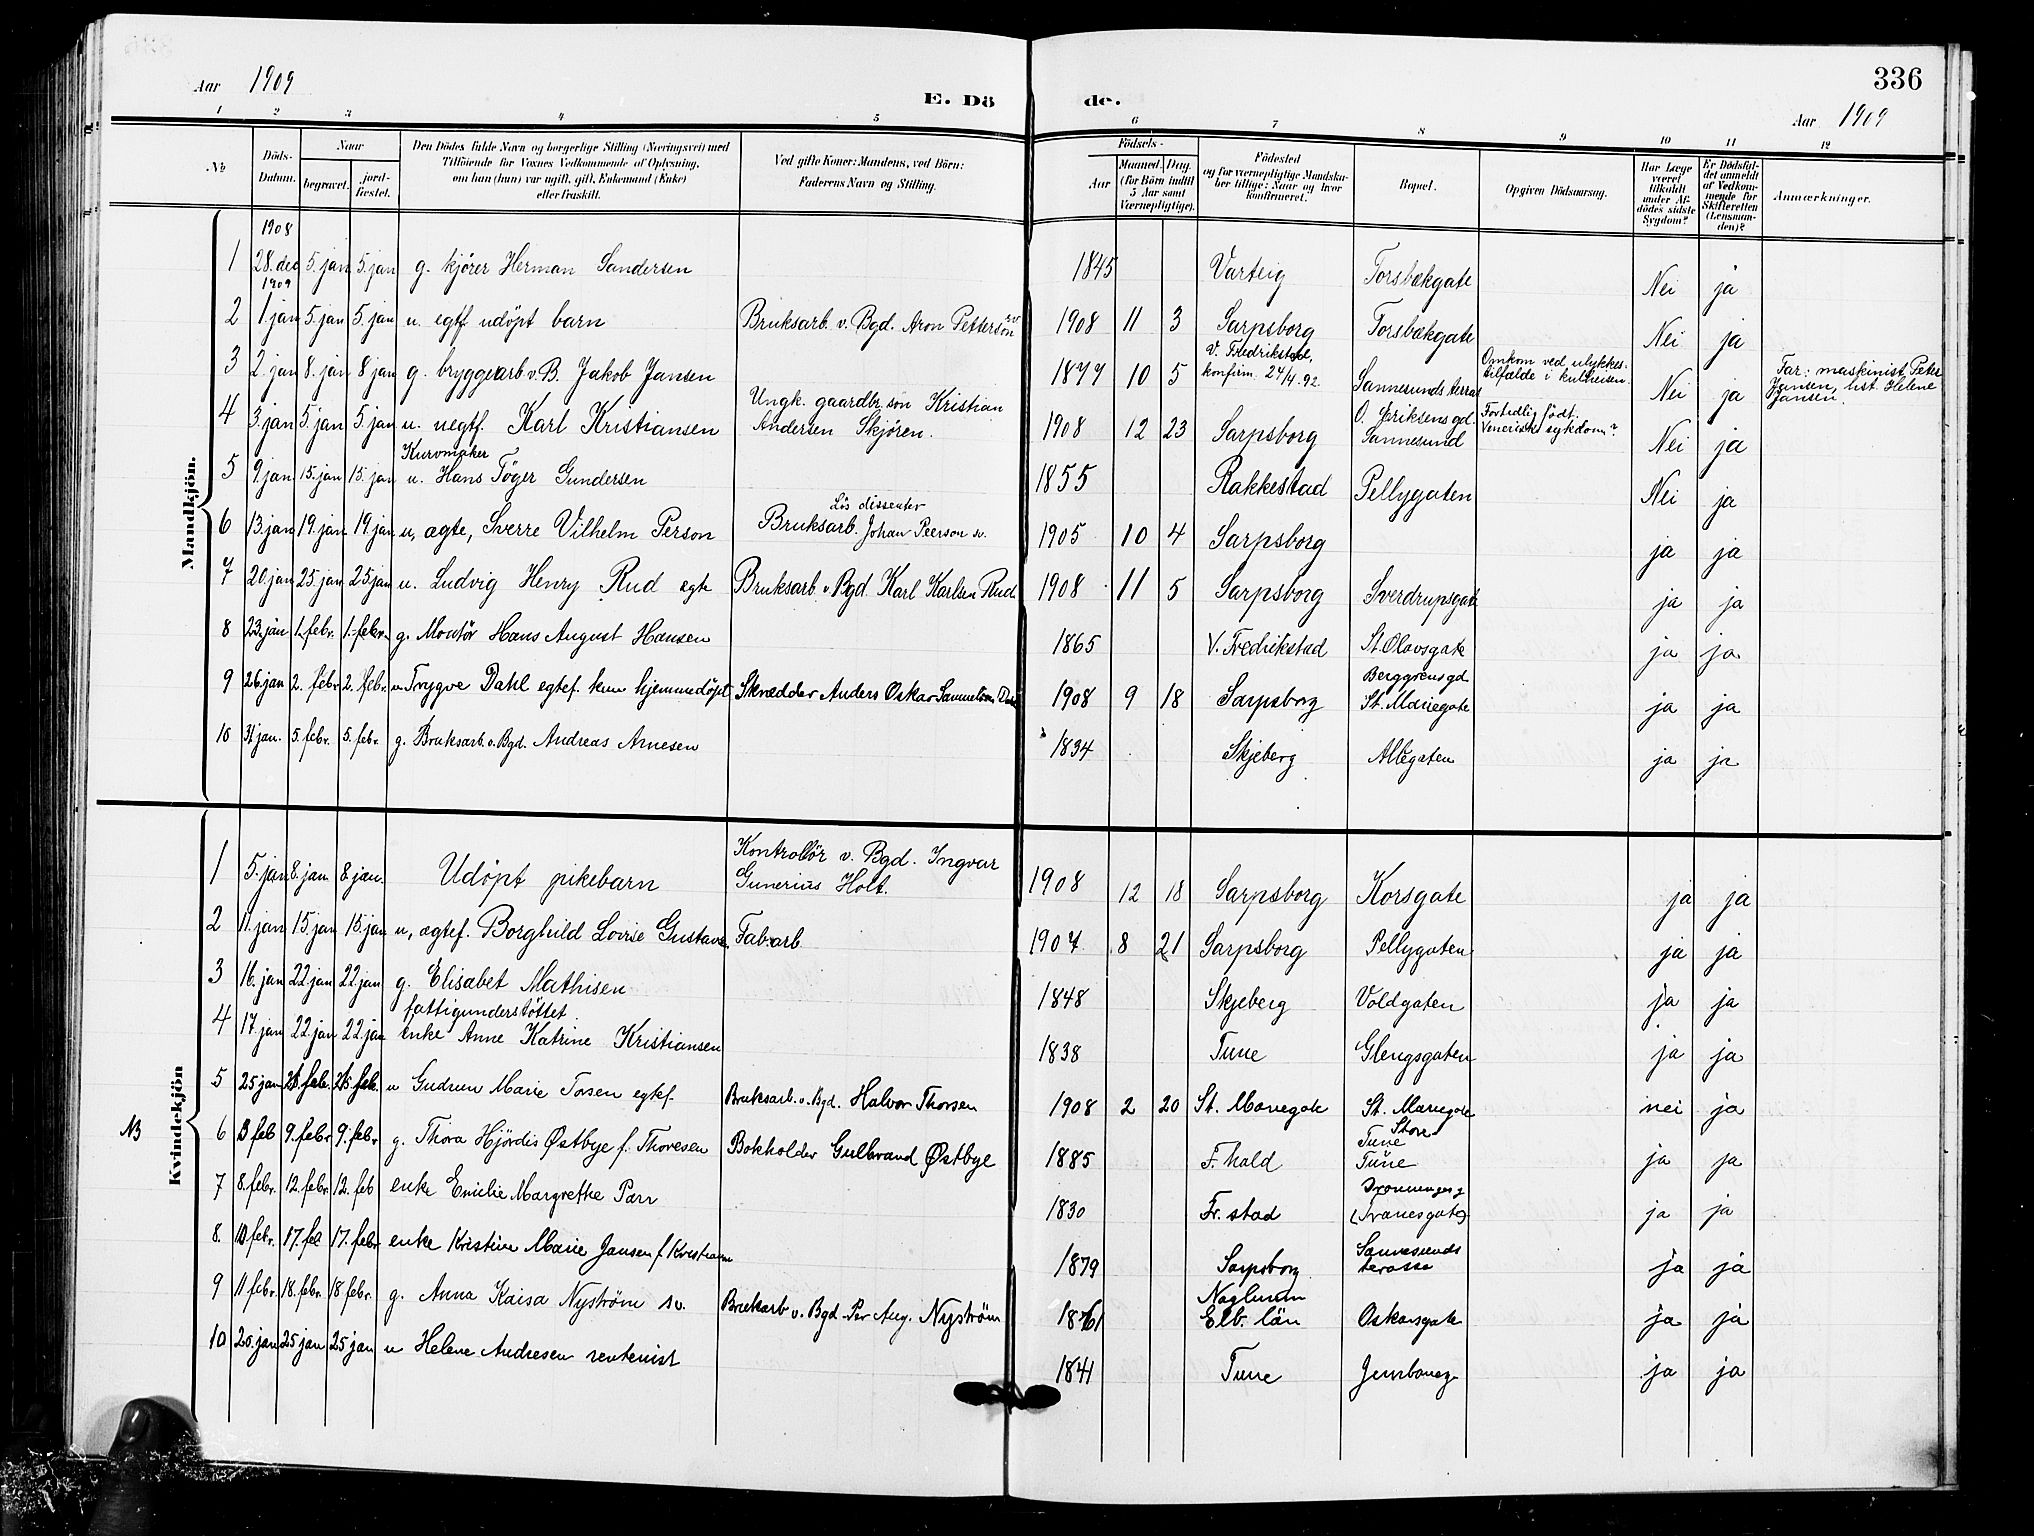 336
Aar 1909
E. Dö de.
Aar 1909
1 2 3 4 5 6 7 8 9 10 11 12
No
Döds-Datum.
Naar
begravet.
jord-fæstet.
Den Dödes fulde Navn og borgerlige Stilling (Næringsvei) med
Tilföiende for Voxnes Vedkommende af Oplysning,
om han (hun) var ugift, gift, Enkemand (Enke)
eller fraskilt.
Ved gifte Koner: Mandens, ved Börn:
Faderens Navn og Stilling.
Födsels-
Aar
Maaned. Dag.
(for Börn indtil
5 Aar samt
Værnepligtige).
Födested
og for værnepligtige Mandska-
ber tillige: Naar og hvor
konfirmeret.
Bopæl.
Opgiven Dödsaarsag.
Har Læge
været
tilkaldt
under Af-
dödes sidste
Sygdom?
Er Dödsfal-
det anmeldt
af Vedkom-
mende for
Skifteretten
(Lensman-
den)?
Anmærkninger.
Mandkjön.
1908
1 28. dec 5. jan 5. jan g. kjörer Herman Sandersen 1845 Varteig Torsbækgate Nei ja
1909
2 1. jan 5. jan 5. jan u. egtf. udöpt barn Bruksarb. v. Bgd. Aron Petterson sv 1908 11 3 Sarpsborg Torsbækgate Nei ja
3 2. jan 8. jan 8 jan g. bryggearb. v. B. Jakob Jansen 1877 10 5 V. Fredrikstad, konfirm. 24/4. 92. Sannesunds terras Omkom ved ulykkes-tilfælde i kulheisen. Nei ja Far: maskinist Peter Jansen, hst. Helene Jansen.
4 3. jan 5. jan 5. jan u. uegtf. Karl Kristiansen Ungk. gaardbr. sön Kristian Andersen Skjören. 1908 12 23 Sarpsborg O. Eriksens gd. Sannesund Fortidlig födt. Venerisk sykdom? Nei ja
Kurvmaker
5 9. jan 15. jan 15. jan u. Hans Töger Gundersen 1855 Rakkestad Pellygaten Nei ja
6 13. jan 19. jan 19. jan u, ægte, Sverre Vilhelm Person Lös dissenter Bruksarb. Johan Peerson sv. 1905 10 4 Sarpsborg ja ja
7 20. jan 25. jan 25. jan u. Ludvig Henry Rud egte Bruksarb. v. Bgd. Karl Karlsen Rud 1908 11 5 Sarpsborg Sverdrupsgate ja ja
8 23. jan 1. febr. 1. febr. g. Montör Hans August Hansen 1865 V. Fredrikstad St. Olavsgate ja ja
9 26. jan 2. febr 2. febr. u Trygve Dahl egtef. kun hjemmedöpt Skrædder Anders Oskar Samuelsen Dahl 1908 9 18 Sarpsborg Berggrensgd St. Mariegate ja ja
10 31. jan. 5. febr. 5. febr. g. Bruksarb. v. Bgd. Andreas Arnesen 1834 Skjeberg Allégaten ja ja
Kvindekjön
1 5. jan 8. jan. 8 jan. Udöpt pikebarn Kontrollör v. Bgd. Ingvar Gunerius Holt. 1908 12 18 Sarpsborg Korsgate ja ja
2 11. jan 15. jan 15. jan u, ægtef. Borghild Lovise Gustavsen Fabarb 1907 8 21 Sarpsborg Pellygaten ja ja
3 16. jan 22 jan 22 jan g. Elisabet Mathisen 1848 Skjeberg Voldgaten ja ja
fattigunderstöttet.
4 17. jan 22. jan 22. jan enke Anne Katrine Kristiansen 1838 Tune Glengsgaten ja ja
5 25 jan febr. feb. u Gudrun Marie Torsen egtef. Bruksarb. v. Bgd. Halvor Thorsen 1908 2 20 St. Mariegate St. Mariegate nei ja
NB 6 3 feb 9. febr 9. febr g. Thora Hjördis Østbye f. Thoresen Bokholder Gulbrand Østbye 1885 F. hald Store Tune Tune ja ja
7 8. febr. 12. febr. 12. feb enke Emilie Margrethe Parr 1830 Fr. stad Dronningens g (Tranesgate) ja ja
8. 10 febr. 17. feb 17. febr enke Kristine Marie Jansen f. Kristiansen 1879 Sarpsborg Sannesunds terasse ja ja
9 11 febr. 18. febr. 18 febr. g. Anna Kaisa Nyström sv. Bruksarb v. Bgd. Per Aug. Nyström 1861 Naglum Elb. län Oskarsgate ja ja
10 20. jan 25 jan 25 jan u Helene Andresen rentenist 1841 Tune Jernbaneg ja ja